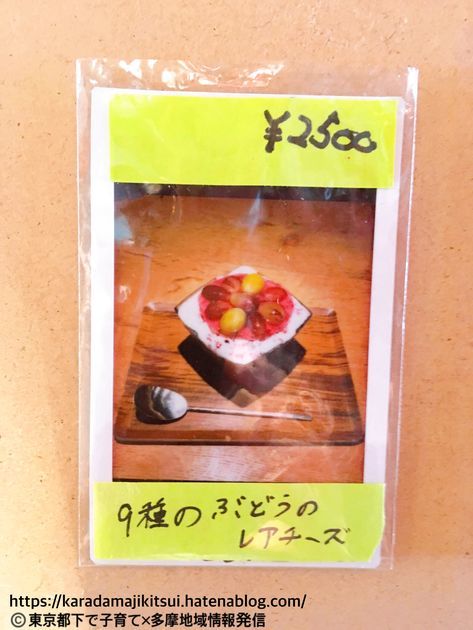 ¥2500
9種のぶどうの
レアチーズ
https://karadamajikitsui.hatenablog.com/
©東京都下で子育て×多摩地域情報発信